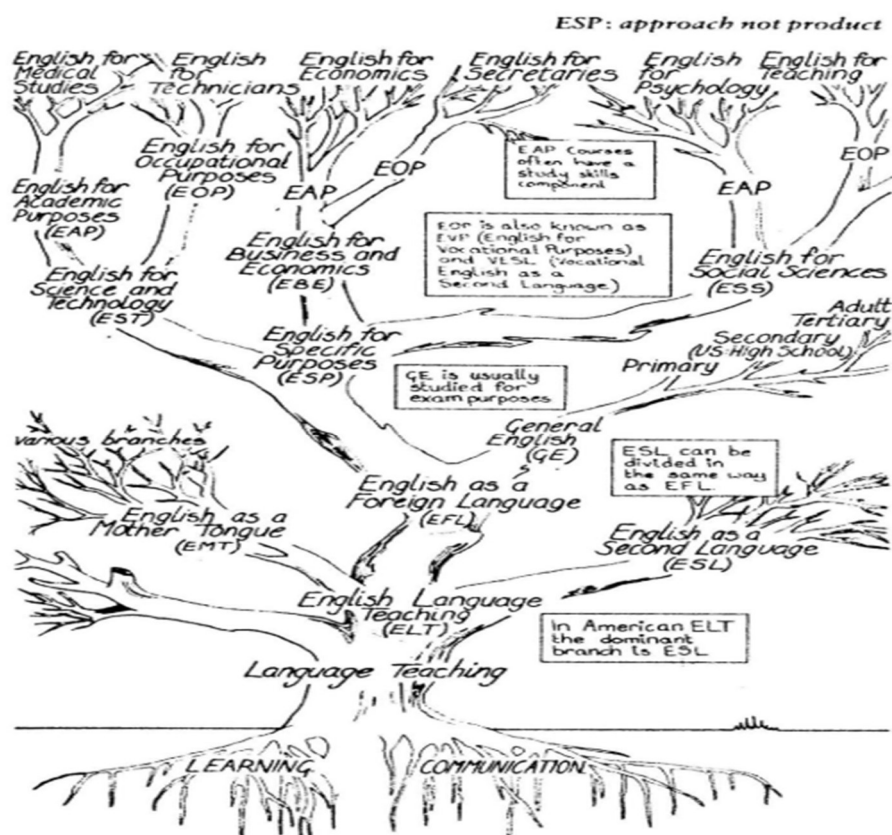 ESP: approach not product
English for
Medical
Studies
English
for
Technicians
English for
Economics
English for
Secretaries
English
for
Psychology
English for
Teaching
English for
Occupational
Purposes
(EOP)
EAP
EOP
EAP Courses
often have a
study skills
component
EAP
EOP
English for
Academic
Purposes
(EAP)
English for
Science and
Technology
(EST)
English for
Business and
Economics
(EBE)
EOP is also known as
EVP (English for
Vocational Purposes)
and VESL (Vocational
English as a
Second Language)
English for
Social Sciences
(ESS)
English for
Specific
Purposes
(ESP)
Adult
Tertiary
Secondary
(US:High School)
Primary
GE is usually
studied for
exam purposes
General
English
(GE)
various branches
English as a
Mother Tongue
(EMT)
English as a
Foreign Language
(EFL)
ESL can be
divided in
the same way
as EFL.
English as a
Second Language
(ESL)
English Language
Teaching
(ELT)
In American ELT
the dominant
branch is ESL
Language Teaching
LEARNING
COMMUNICATION